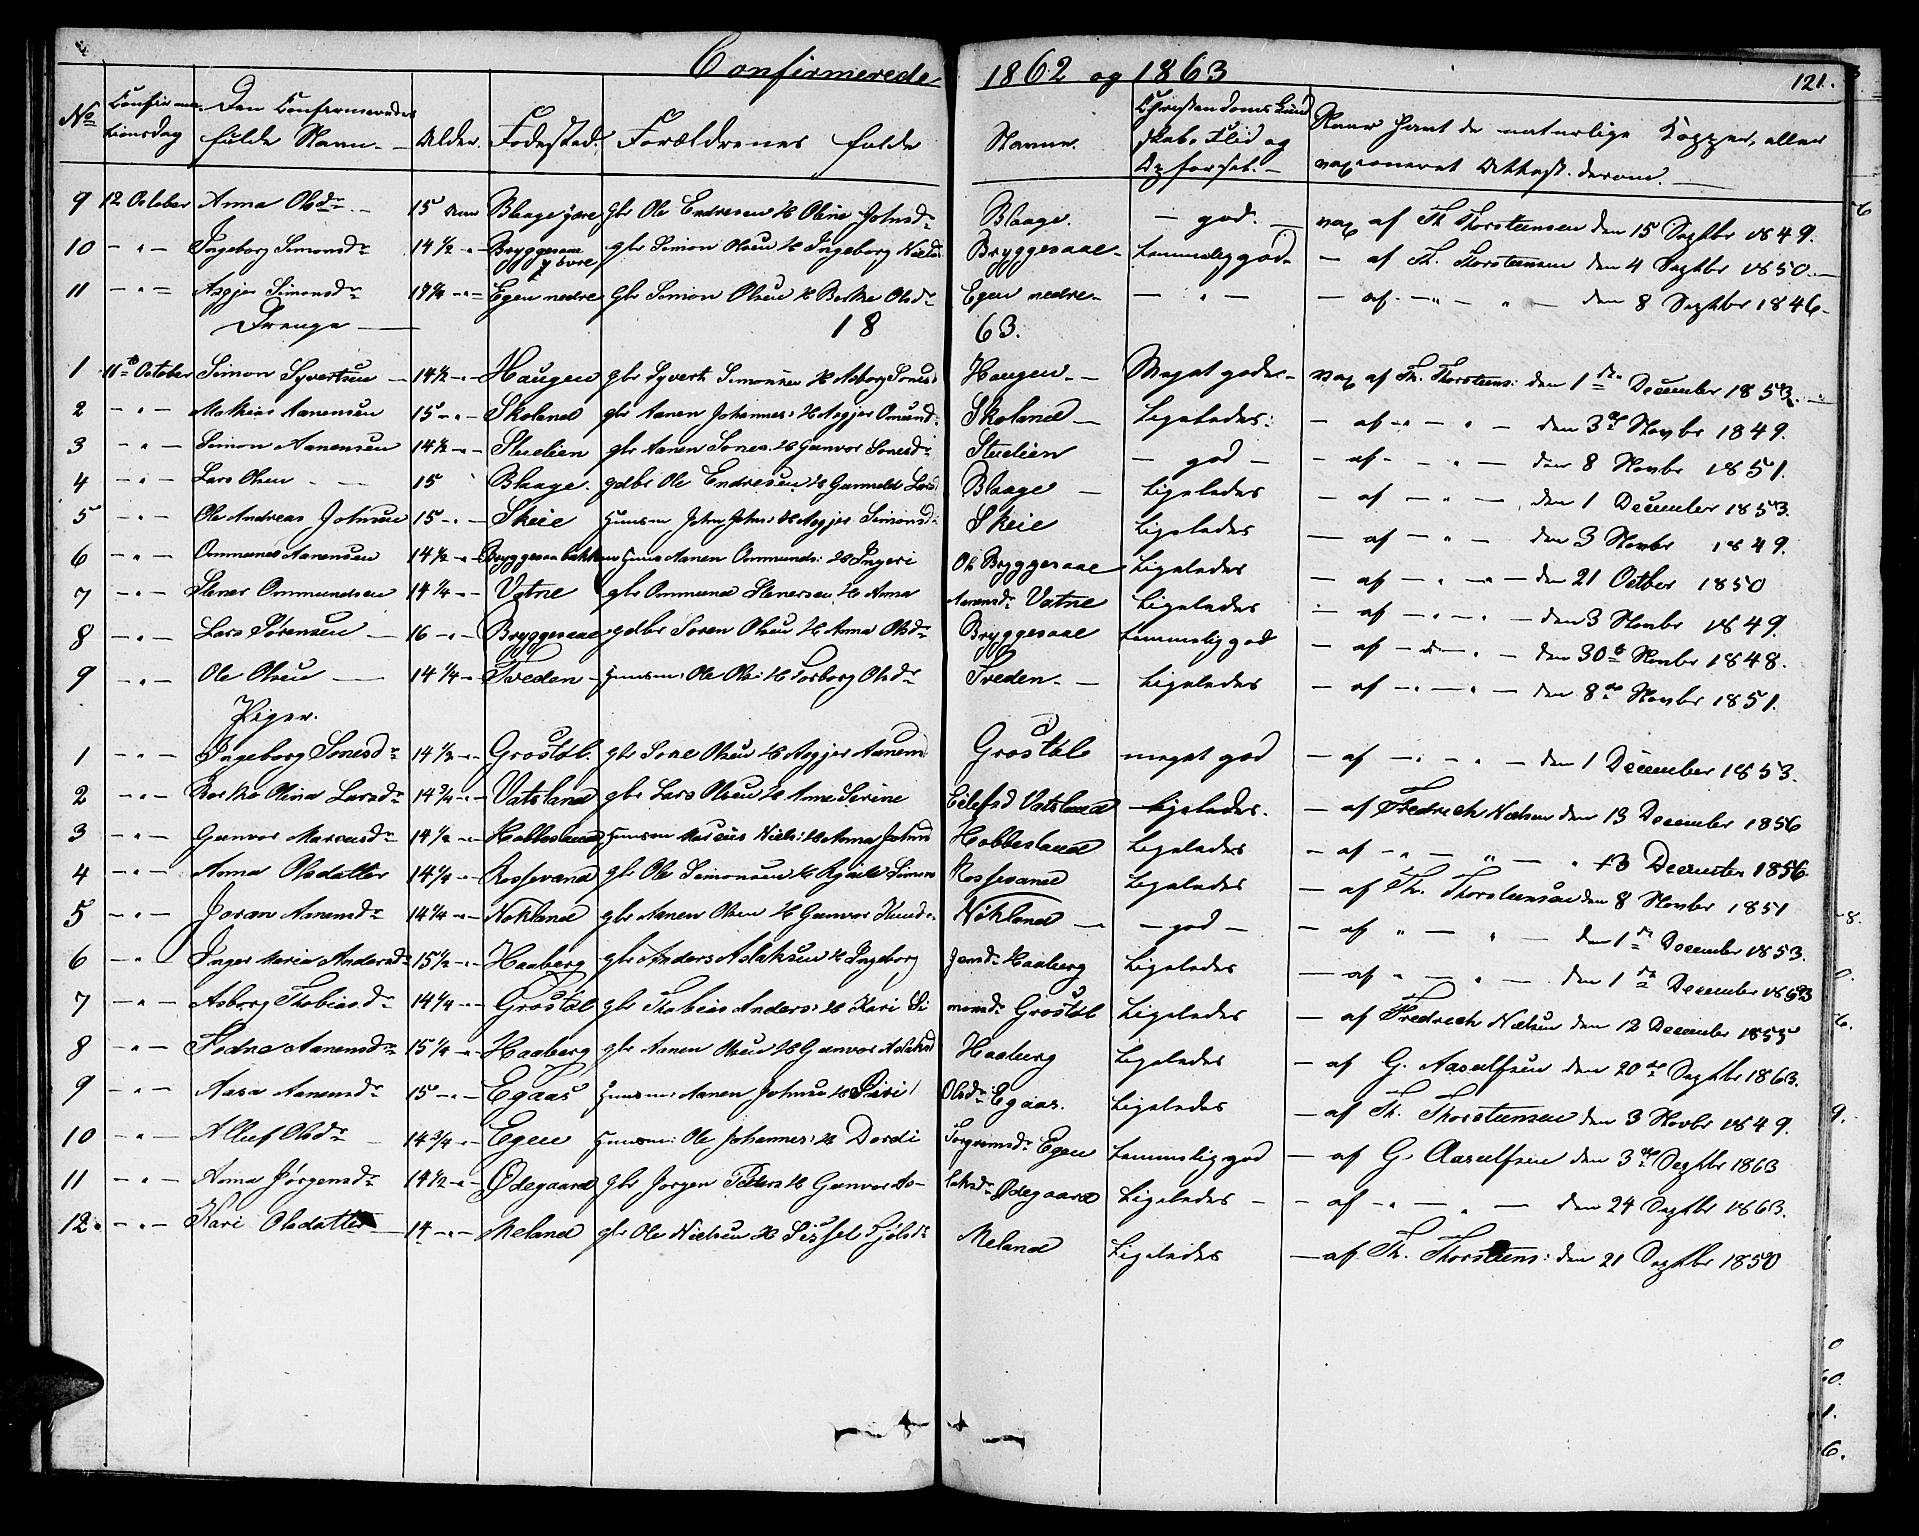 Confirmerede 1862 og 1863 121.
No Confirmationsdag Den Confirmeredes fulde Navn. Alder. Fødested. Forældrenes fulde Navne. Christendoms Kundskab, Flid og Opførsel. Naar havt de naturlige Kopper, eller vaxineret Attest derom.
9 12 October Anna Olsdr 15 Aar Blaage ydre gbr Ole Endresen & Oline Johnsdr Blaage. god. vax af Th Thorsteensen den 15 Septbr 1849.
10 - " - Ingeborg Simonsdr 14½ - " - Bryggesaae øvre gbr Simon Olsen & Ingeborg Nielsd Bryggesaae - temmelig god - af Th. Thorsteensen den 4 Septbr 1850.
11 - " - Asgjer Simonsdr - " - Egen nedre Gbr Simon Olsen & Berthe Olsdr Egen nedre - " - - af - " - " - den 8 Septbr 1846.
Drenge 1863.
1 11te October Simon Syvertsen 14½ - " - Haugen gbr Syvert Simonsen & Asborg Tonesd: Haugen Meget godt - vax af Th. Thorsteens: den 1ste December 1853.
2 - " - Mathias Aanensen 15 - " - Skoland gbr Aanen Johannes: & Asgjer Omund: Skoland - Ligeledes: - af - " - " - den 3de Novbr 1849.
3 - " - Simon Aanensen 14½ - " - Studlien gbr Aanen Tones: & Gunvor Tonesd: Studlien - god - - af - " - den 8 Novbr 1851.
4 - " - Lars Olsen 15 Blaage. gdbr Ole Endresen & Gunnild Larsd Blaage - Ligeledes - af - " - den 1 December 1853.
5 - " - Ole Andreas Johnsen 15 - " - Skeie Huusm John Johns: & Asgjer Simonsd: Skeie Ligeledes - af - " - den 3 Novbr 1849.
6 - " - Ommund Aanensen 14½ - " - Bryggesaabakken Huusm Aanen Ommunds: & Ingeri Ol: Bryggesaae Ligeledes - af - " - " - den 21 Octber 1850
7 - " - Stener Ommundsen 14¼ - " - Vatne gbr Ommund Stenersen & Anna Aanensdr Vatne Ligeledes - af - " - " - den 3 Novbr 1849.
8 - " - Lars Sørensen - 16 - " - Bryggesaae gdbr Søren Olsen & Anna Olsdr Bryggesaae temmelig god - af - " - den 30te Novbr 1848.
9 - " - Ole Olsen 14¼ - " - Tveden - Huusm: Ole Ols: & Torborg Olsdr Tveden. - Ligeledes - af - " - " - den 8de Novbr 1851.
Piger.
1 - " - Ingeborg Tonesdr 14½ - " - Grostøl. gbr Tone Olsen & Asgjer Aanensd Grostøl meget god - af - " - " - den 1 December 1853.
2 - " - Berthe Olina Larsdr 14¾ - " - Vatsland gbr Lars Olsen & Ane Serine Eilefsd Vatsland - Ligeledes. - af Fredrich Nielsen den 13 December 1856
3 - " - Gunvor Marcusdr 14½ - " - Hobbesland Huusm Marcus Niels: & Anna Johnsd Hobbesland Ligeledes - af - " - " - " 13 December 1856.
4 - " - Anna Olsdatter 14¼ - " - Rossevand gbr Ole Simonsen & Simons Rossevand Ligeledes - af Th. Thorsteensen den 8 Novbr 1851
5 - " - Joran Aanensdr 14¼ - " - Nokland gbr Aanen Olsen & Gunvor Knudsd: Nokland - - god - - af " - " - den 1ste December 1853.
6 - " Inger Maria Andersdr 15½ - " - Haaberg gbr Anders Aslaksen & Ingeborg Jensdr Haaberg Ligeledes - af " - " - den 1ste December
7 - " - Asborg Thobiasdr 14¼ - " - Grostøl gbr Thobias Anders: & Kari Simonsdr Grostøl Ligeledes - af Fredrich Nielsen den 12 December 1855
8 - " - Aanensdr 15¼ - " - Haaberg gbr Aanen Olsen & Gunvor Aslaksd Haaberg Ligeledes - af G. Aasulfsen den 20de Septbr 1863.
9 - " - Aasa Aanensdr 15 - " - Egaas Huusm: Aanen Johnsen & Siri Olsdr: Egaas. Ligeledes - af Th. Thorsteensen den 3 Novbr 1849.
10 - " - Allef Olsdr 14¾ - " - Egen Huusm: Ole Johannes: & Dordi Torgrimsdr Egen temmelig god - af G. Aasulfsen den 3de Septbr 1863
11 - " - Anna Jørgensdr 14½ - " - Ødegaard gbr Jørgen Peders & Gunvor As- laksdr Ødegaard Ligeledes - - af - " - " - den 24 Septbr 1863.
12. - " - Kari Olsdatter 14 - " - Meland gbr Ole Nielsen & Sissel Meland Ligeledes - af Th. Thorsteens: den 21 Septbr 1850